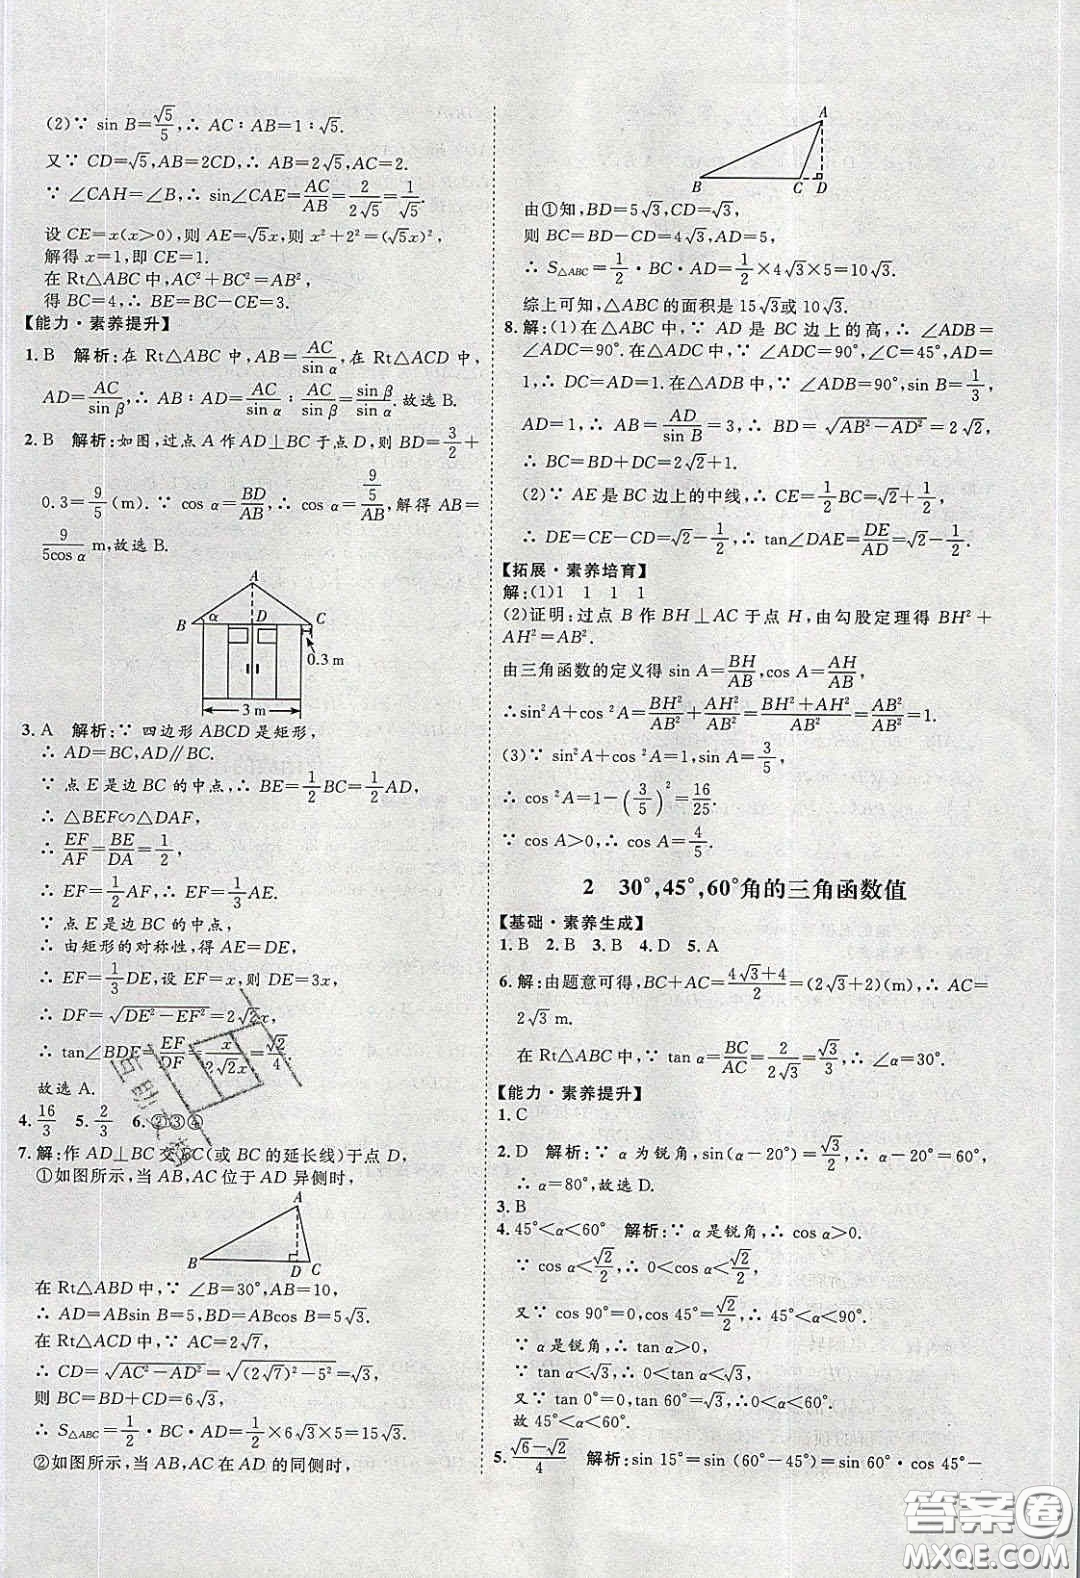 (2)∵ sin B=√5/5,∴ AC∶AB=1∶√5.
又∵ CD=√5,AB=2CD,∴ AB=2√5,AC=2.
∵ ∠CAH=∠B,∴ sin∠CAE=AC/AB=2/(2√5)=1/√5.
设 CE=x(x>0),则 AE=√5x,则 x²+2²=(√5x)²,
解得 x=1,即 CE=1.
在 Rt△ABC 中,AC²+BC²=AB²,
得 BC=4,∴ BE=BC-CE=3.
【能力·素养提升】
1. B 解析:在 Rt△ABC 中,AB=AC/sin α,在 Rt△ACD 中,
AD=AC/sin β,∴ AB∶AD=AC/sin α∶AC/sin β=sin β/sin α.故选 B.
2. B 解析:如图,过点 A 作 AD⊥BC 于点 D,则 BD=3/2+
0.3=9/5(m).∵ cos α=BD/AB,∴ cos α=(9/5)/AB,解得 AB=
9/(5cos α) m,故选 B.
A
B α D C
0.3 m
3 m
3. A 解析:∵ 四边形 ABCD 是矩形,
∴ AD=BC,AD∥BC.
∵ 点 E 是边 BC 的中点,∴ BE=1/2BC=1/2AD,
∴ △BEF∽△DAF,
∴ EF/AF=BE/DA=1/2,
∴ EF=1/2AF,∴ EF=1/3AE,
∵ 点 E 是边 BC 的中点,
∴ 由矩形的对称性,得 AE=DE,
∴ EF=1/3DE,设 EF=x,则 DE=3x,
∴ DF=√(DE²-EF²)=2√2x,
∴ tan∠BDE=EF/DF=x/(2√2x)=√2/4.
故选 A.
4. 16/3 5. 2/3 6. ②③④
7. 解:作 AD⊥BC 交 BC(或 BC 的延长线)于点 D,
①如图所示,当 AB,AC 位于 AD 异侧时,
A
B D C
在 Rt△ABD 中,∵ ∠B=30°,AB=10,
∴ AD=ABsin B=5,BD=ABcos B=5√3.
在 Rt△ACD 中,∵ AC=2√7,
∴ CD=√(AC²-AD²)=√((2√7)²-5²)=√3,
则 BC=BD+CD=6√3,
∴ S△ABC=1/2·BC·AD=1/2×6√3×5=15√3.
②如图所示,当 AB,AC 在 AD 的同侧时,
A
B C D
由①知,BD=5√3,CD=√3,
则 BC=BD-CD=4√3,AD=5,
∴ S△ABC=1/2·BC·AD=1/2×4√3×5=10√3.
综上可知,△ABC 的面积是 15√3或 10√3.
8. 解:(1)在△ABC 中,∵ AD 是 BC 边上的高,∴ ∠ADB=
∠ADC=90°.在△ADC 中,∵ ∠ADC=90°,∠C=45°,AD=
1,∴ DC=AD=1.在△ADB 中,∵ ∠ADB=90°,sin B=1/3,
AD=1,∴ AB=AD/sin B=3,∴ BD=√(AB²-AD²)=2√2,
∴ BC=BD+DC=2√2+1.
(2)∵ AE 是 BC 边上的中线,∴ CE=1/2BC=√2+1/2,
∴ DE=CE-CD=√2-1/2,∴ tan∠DAE=DE/AD=√2-1/2.
【拓展·素养培育】
解:(1)1 1 1 1
(2)证明:过点 B 作 BH⊥AC 于点 H,由勾股定理得 BH²+
AH²=AB².
由三角函数的定义得 sin A=BH/AB,cos A=AH/AB,
∴sin²A+cos²A=BH²/AB²+AH²/AB²=(BH²+AH²)/AB²=AB²/AB²=1.
(3)∵ sin²A+cos²A=1,sin A=3/5,
∴ cos²A=1-(3/5)²=16/25.
∵ cos A>0,∴ cos A=4/5.
2 30°,45°,60°角的三角函数值
【基础·素养生成】
1. B 2. B 3. B 4. D 5. A
6. 解:由题意可得,BC+AC=(4√3+4)/2=(2√3+2)(m),∴ AC=
2√3 m.
在 Rt△ABC 中,∵ tan α=BC/AC=2/(2√3)=√3/3,∴ ∠α=30°.
【能力·素养提升】
1. C
2. D 解析:∵ α 为锐角,sin(α-20°)=√3/2,∴ α-20°=60°,
∴ α=80°,故选 D.
3. B
4. 45°<α<60° 解析:∵ α 是锐角,∴ cos α>0.
∵ cos α<√2/2,∴ 0<cos α<√2/2,
又∵ cos 90°=0,cos 45°=√2/2,∴ 45°<α<90°.
∵ α 是锐角,∴ tan α>0,
∵ tan α<√3,∴ 0<tan α<√3,
又∵ tan 0°=0,tan 60°=√3,∴0<α<60°.
故 45°<α<60°.
5. (√6-√2)/4 解析:sin 15°=sin (60°-45°)=sin 60°·cos 45°-
互助
答案圈
MXQE.COM